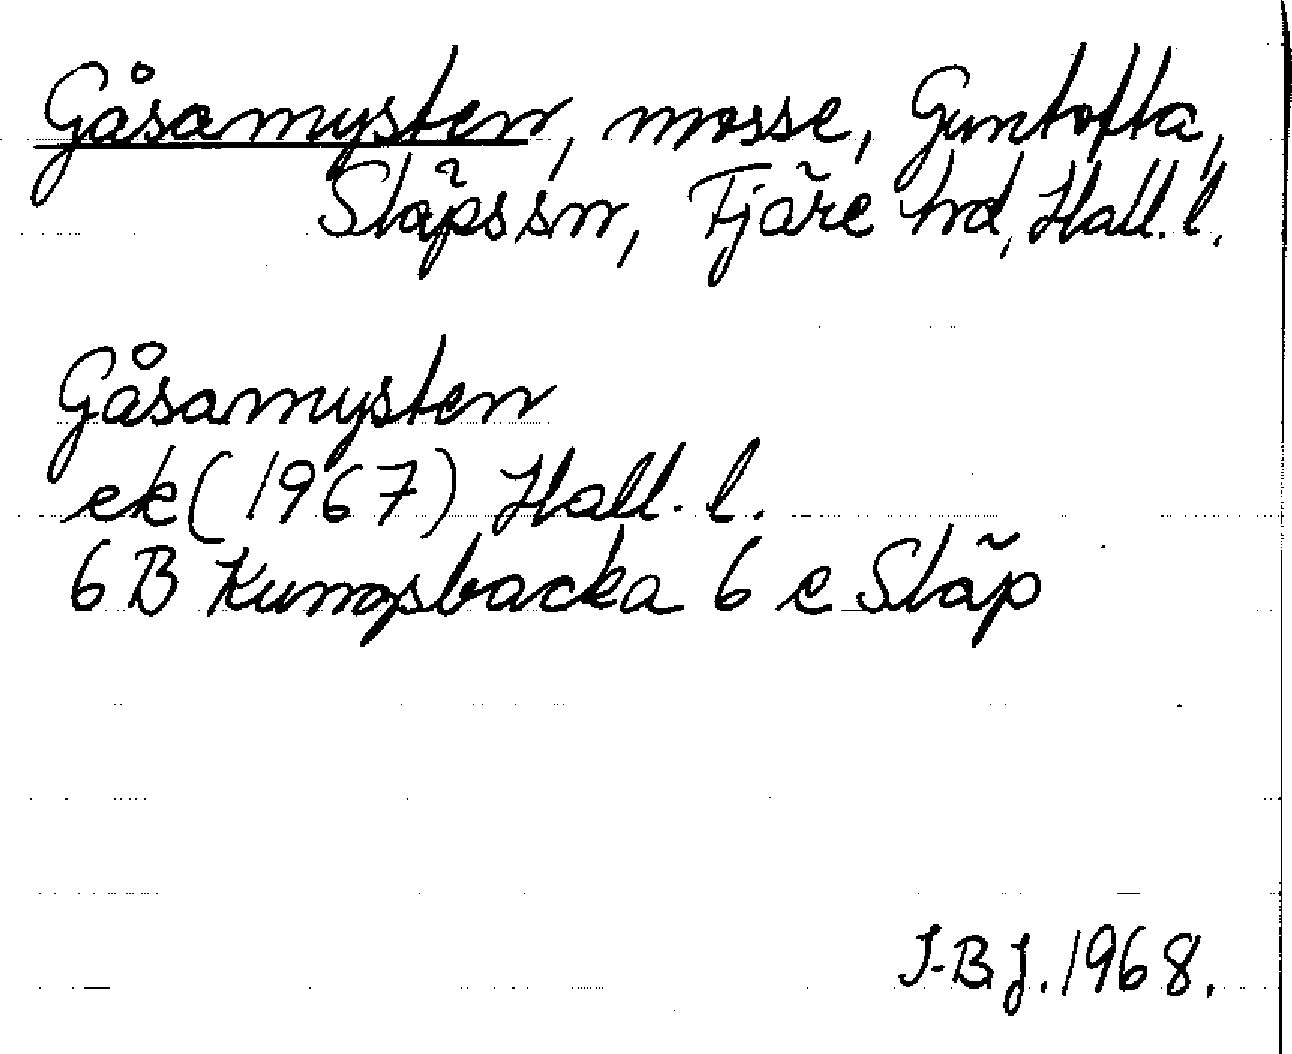 Gåsamysten, mosse, Guntofta,
Släps sn, Fjäre hd, Hall. l.
Gåsamysten
ek (1967) Hall. l.
6 B Kungsbacka 6 e Släp
I-B.J. 1968.